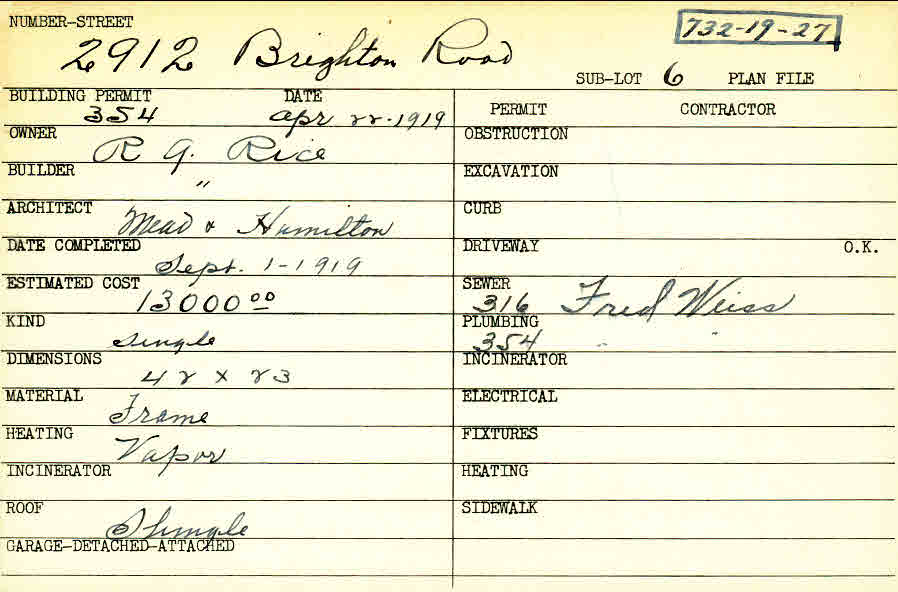 NUMBER-STREET
732-19-27
2912 Brighton Road
SUB-LOT 6 PLAN FILE
BUILDING PERMIT DATE
354 Apr 22-1919
OWNER
R G. Rice
BUILDER
"
ARCHITECT
Mead & Hamilton
DATE COMPLETED
Sept. 1-1919
ESTIMATED COST
13000 00
KIND
Single
DIMENSIONS
42 x 23
MATERIAL
Frame
HEATING
Vapor
INCINERATOR
ROOF
Shingle
GARAGE-DETACHED-ATTACHED
PERMIT CONTRACTOR
OBSTRUCTION
EXCAVATION
CURB
DRIVEWAY O.K.
SEWER
316 Fred Weiss
PLUMBING
354 " "
INCINERATOR
ELECTRICAL
FIXTURES
HEATING
SIDEWALK